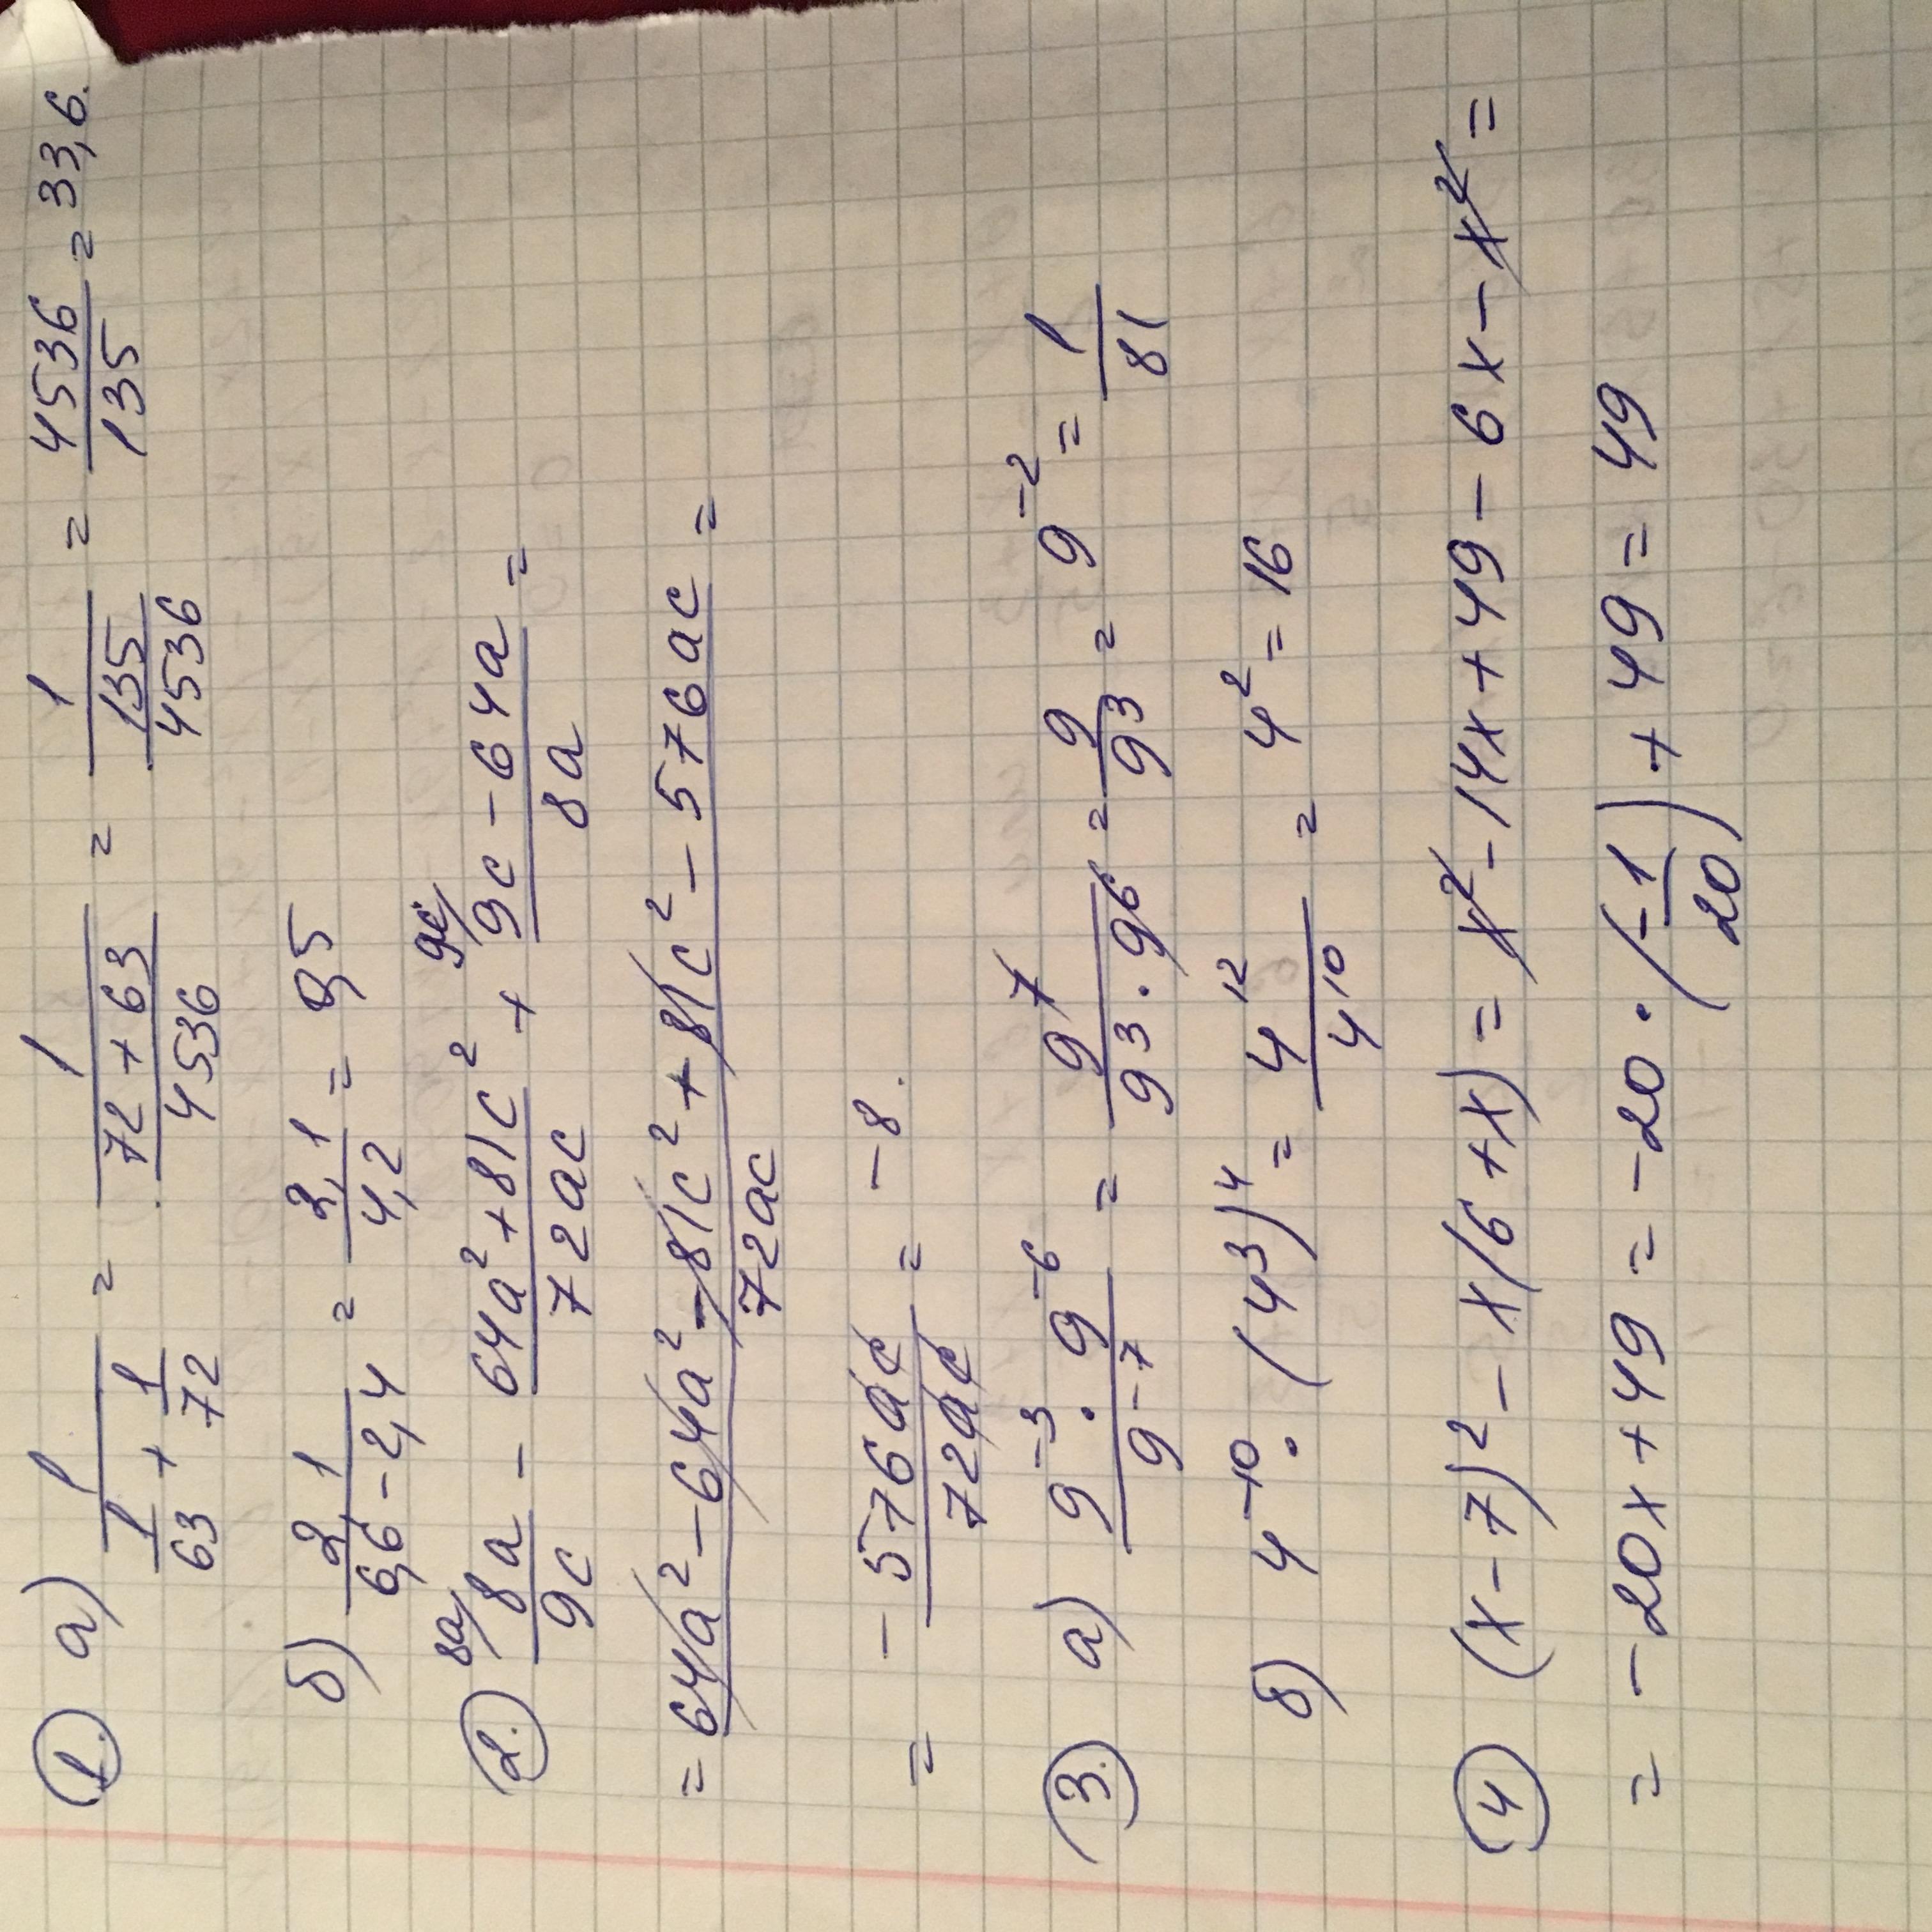 1. а) 1/(1/63 + 1/72) = 1/((72 + 63)/4536) = 1/(135/4536) = 4536/135 = 33,6.
б) 2,1/(6,6 - 2,4) = 2,1/4,2 = 0,5
2. 8a/ 8a/9c - (64a² + 81c²)/72ac + 9c/ (9c - 64a)/8a =
= (64a² - 64a² - 81c² + 81c² - 576ac)/72ac =
= - 576ac/72ac = -8.
3. а) (9⁻³ · 9⁻⁶)/9⁻⁷ = 9⁷/(9³ · 9⁶) = 9/9³ = 9⁻² = 1/81
б) 4⁻¹⁰ · (4³)⁴ = 4¹²/4¹⁰ = 4² = 16
4 (x - 7)² - x(6 + x) = x² - 14x + 49 - 6x - x² =
= -20x + 49 = -20 · (-1/20) + 49 = 49